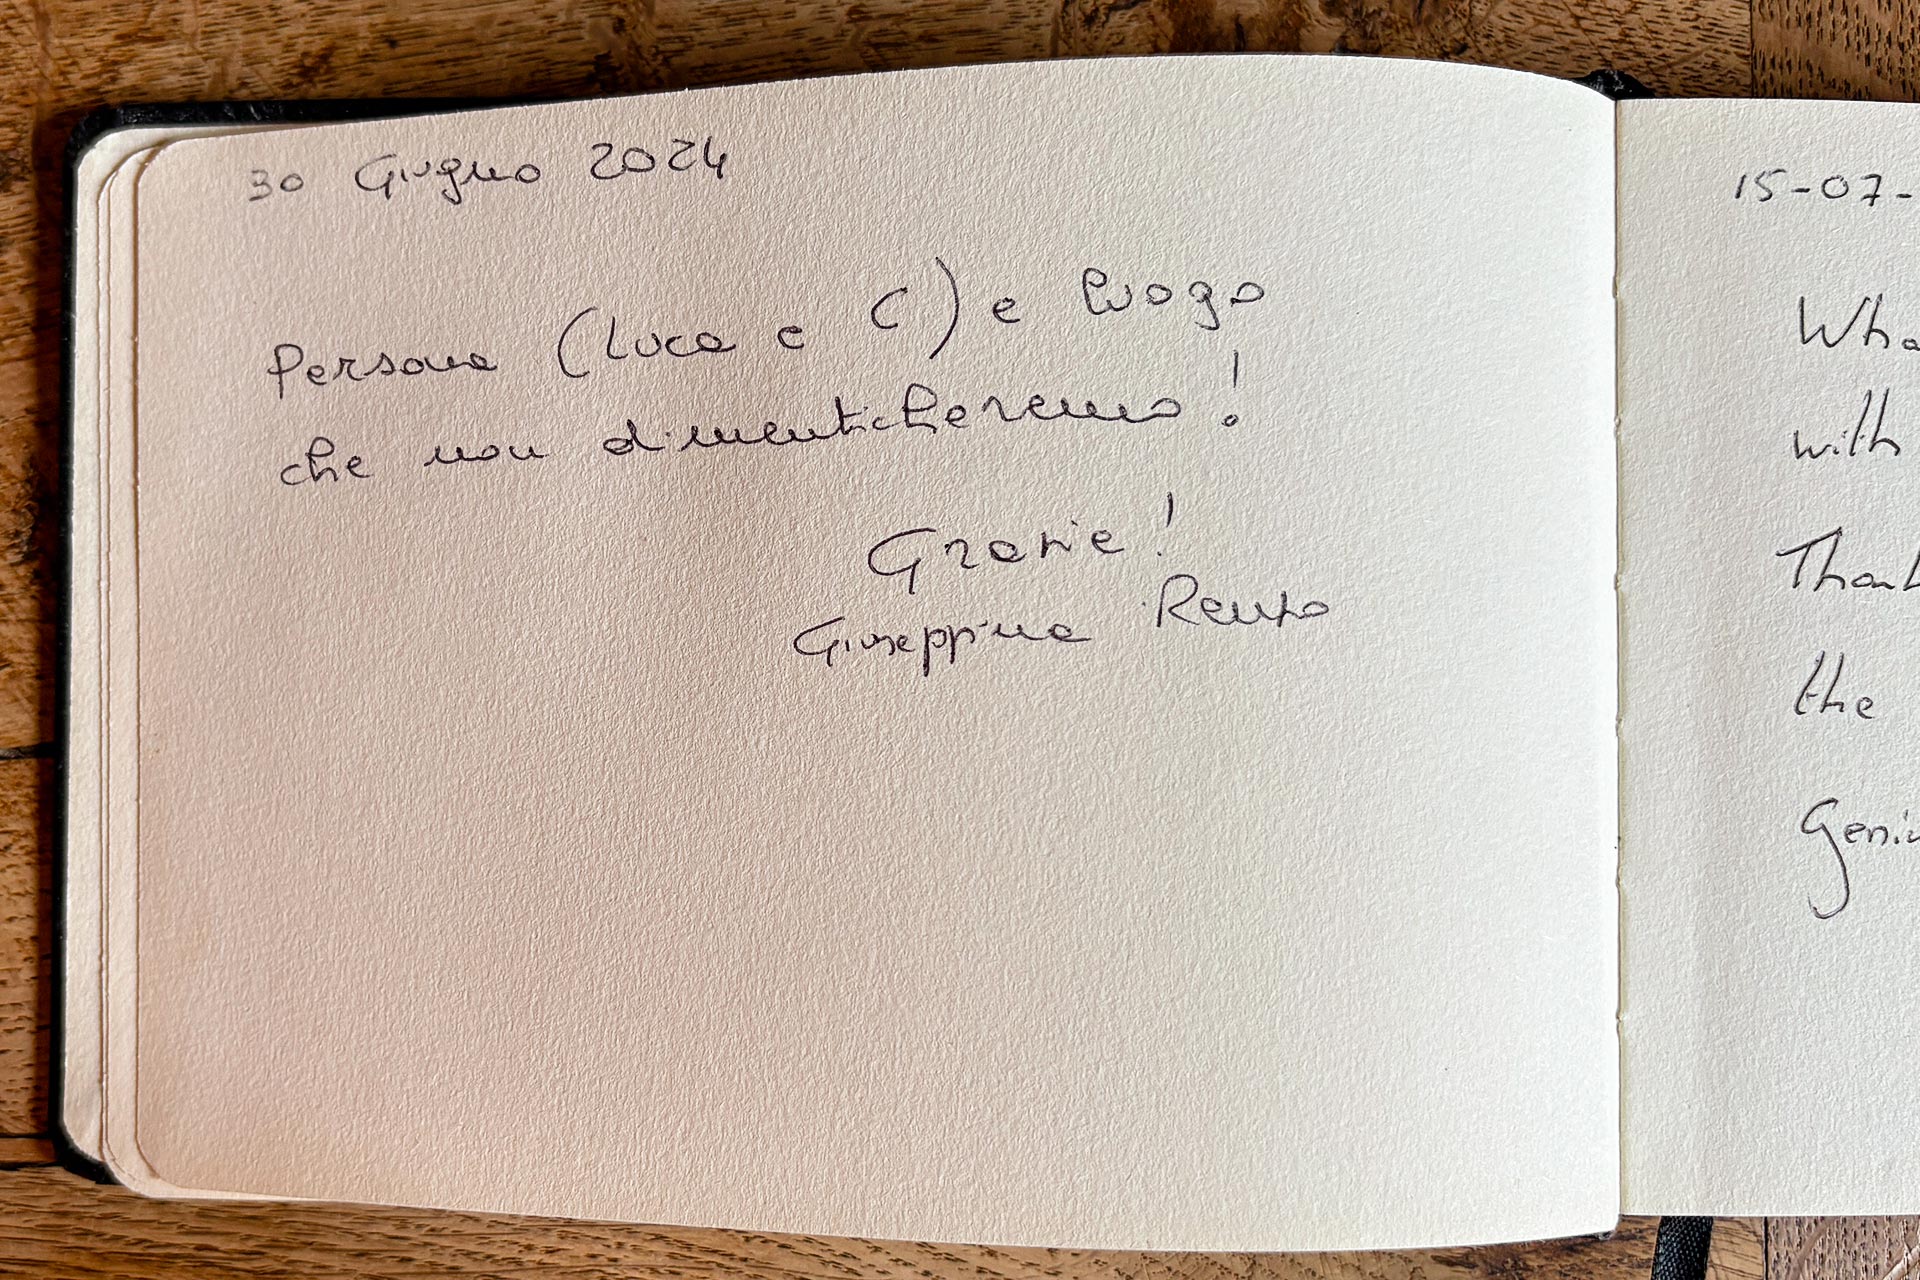 30 Giugno 2024
Persona (Luca e C) e luogo
che non dimenticheremo!
Grazie!
Giuseppina Renzo
15-07-
Wha
with
Thank
the
Geniu